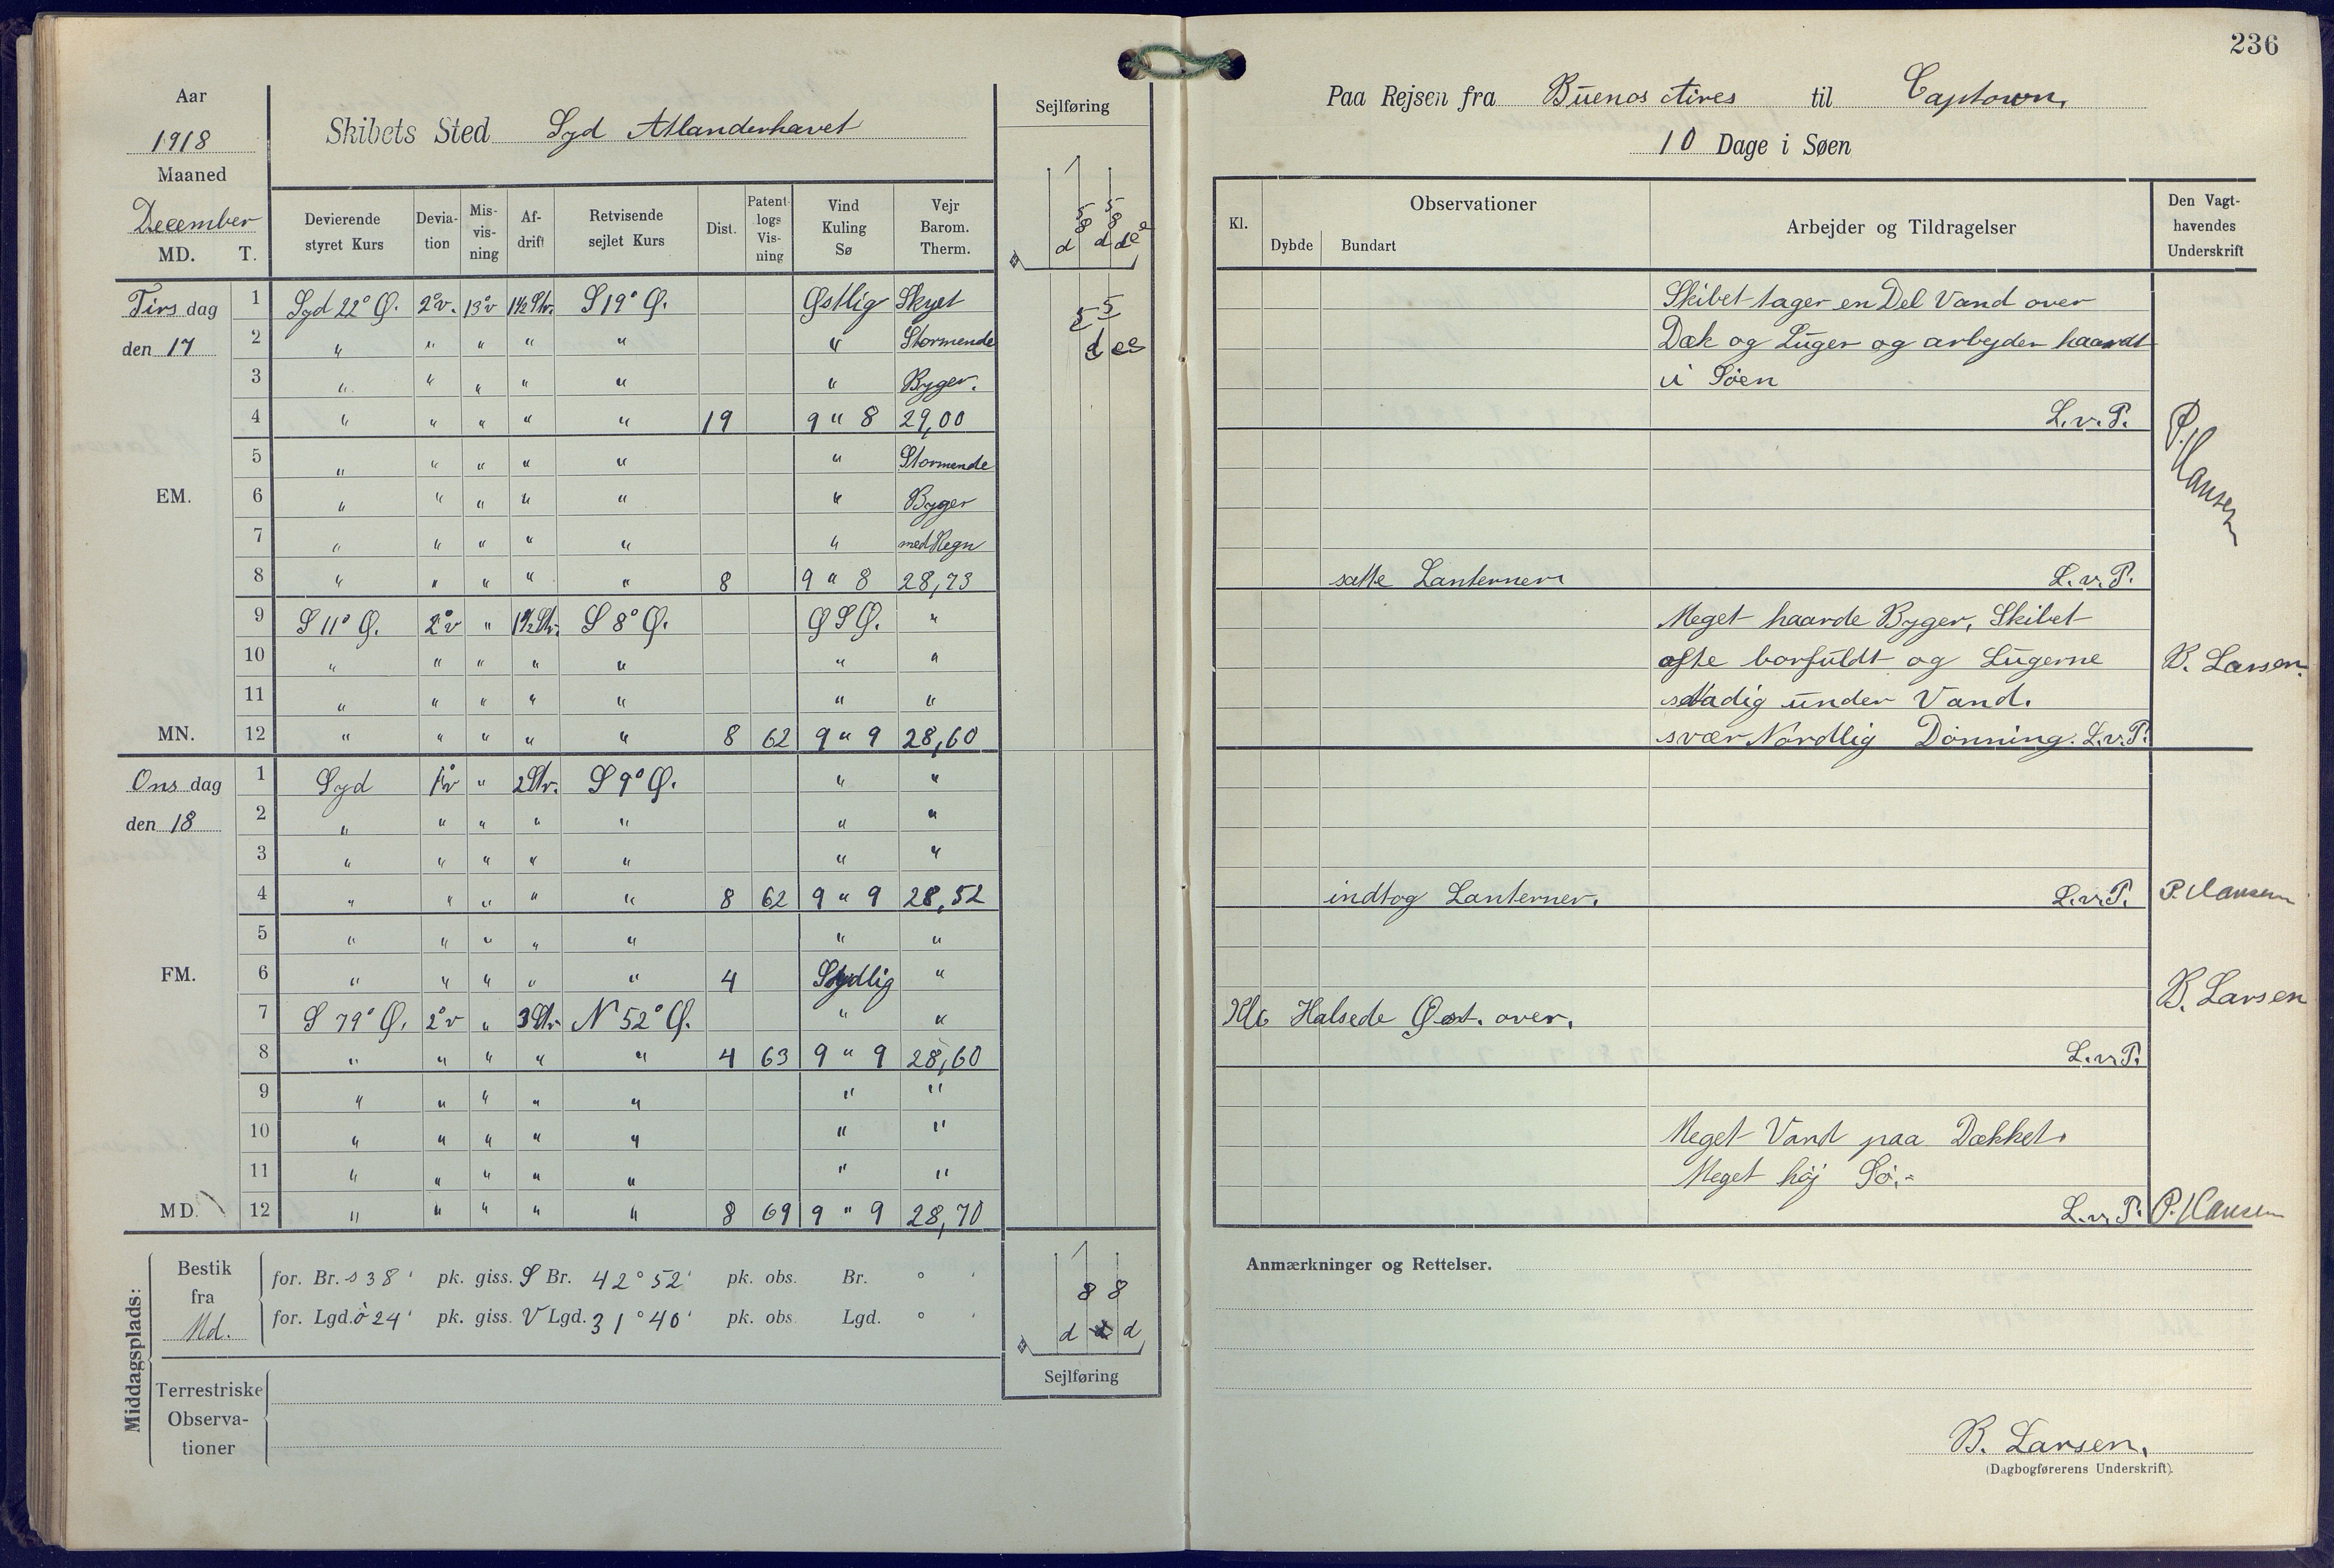 236
Aar
1918
Maaned
December
MD. T.
Skibets Sted Syd Atlanderhavet
Sejlføring
Paa Rejsen fra Buenos Aires til Captown,
10 Dage i Søen
Devierende styret Kurs
Devia- tion
Mis- vis- ning
Af- drift
Retvisende sejlet Kurs
Dist.
Patent- logs Vis- ning
Vind Kuling Sø
Vejr Barom. Therm.
Kl.
Observationer
Dybde Bundart
Arbejder og Tildragelser
Den Vagt- havendes Underskrift
5 5
8 8
d d d e e
Tirsdag 1 Syd 22° Ø. 2°v. 13°v 1½ Str. S 19° Ø. Østlig Skyet Skibet tager en Del Vand over
den 17 2 " " " " " " Stormende Dæk og Luger og arbejder haardt
5 5
d e e
3 " " " " " " Byger. i Söen
4 " " " " " 19 9 " 8 29,00 L.v.P.
P. Hansen
5 " " " " " " Stormende
EM. 6 " " " " " " Byger
7 " " " " " " med Regn
8 " " " " " 8 9 " 8 28,73 satte Lanterner. L.v.P.
9 S 11° Ø. 2°v " 1½ Str. S 8° Ø. ØSØ. " Meget haarde Byger, Skibet
10 " " " " " " " ofte borfuldt og Lugerne B. Larsen.
11 " " " " " " " stadig under Vand.
MN. 12 " " " " " 8 62 9 " 9 28,60 svær Nordlig Dönning. L.v.P.
Onsdag 1 Syd 1°v " 2 Str. S 9° Ø. " "
den 18 2 " " " " " " "
3 " " " " " " "
4 " " " " " 8 62 9 " 9 28,52 indtog Lanterner. L.v.P. P. Hansen
5 " " " " " " "
FM. 6 " " " " " 4 Sydlig "
B. Larsen
7 S 79° Ø. 2°v " 3 Str. N 52° Ø. " " Kl 6 Halsede Øst. over.
8 " " " " " 4 63 9 " 9 28,60 L.v.P.
9 " " " " " " "
10 " " " " " " " Meget Vand paa Dækket.
11 " " " " " " " Meget höj Sö.-
MD. 12 " " " " " 8 69 9 " 9 28,70 L.v.P. P. Hansen
Middagsplads:
Bestik fra Md.
for. Br. s 38' pk. giss. S Br. 42° 52' pk. obs. Br. ° '
for. Lgd. ö 24' pk. giss. V Lgd. 31° 40' pk. obs. Lgd. ° '
8 8
d d d
Sejlføring
Terrestriske
Observa-
tioner
Anmærkninger og Rettelser.
B. Larsen.
(Dagbogførerens Underskrift).